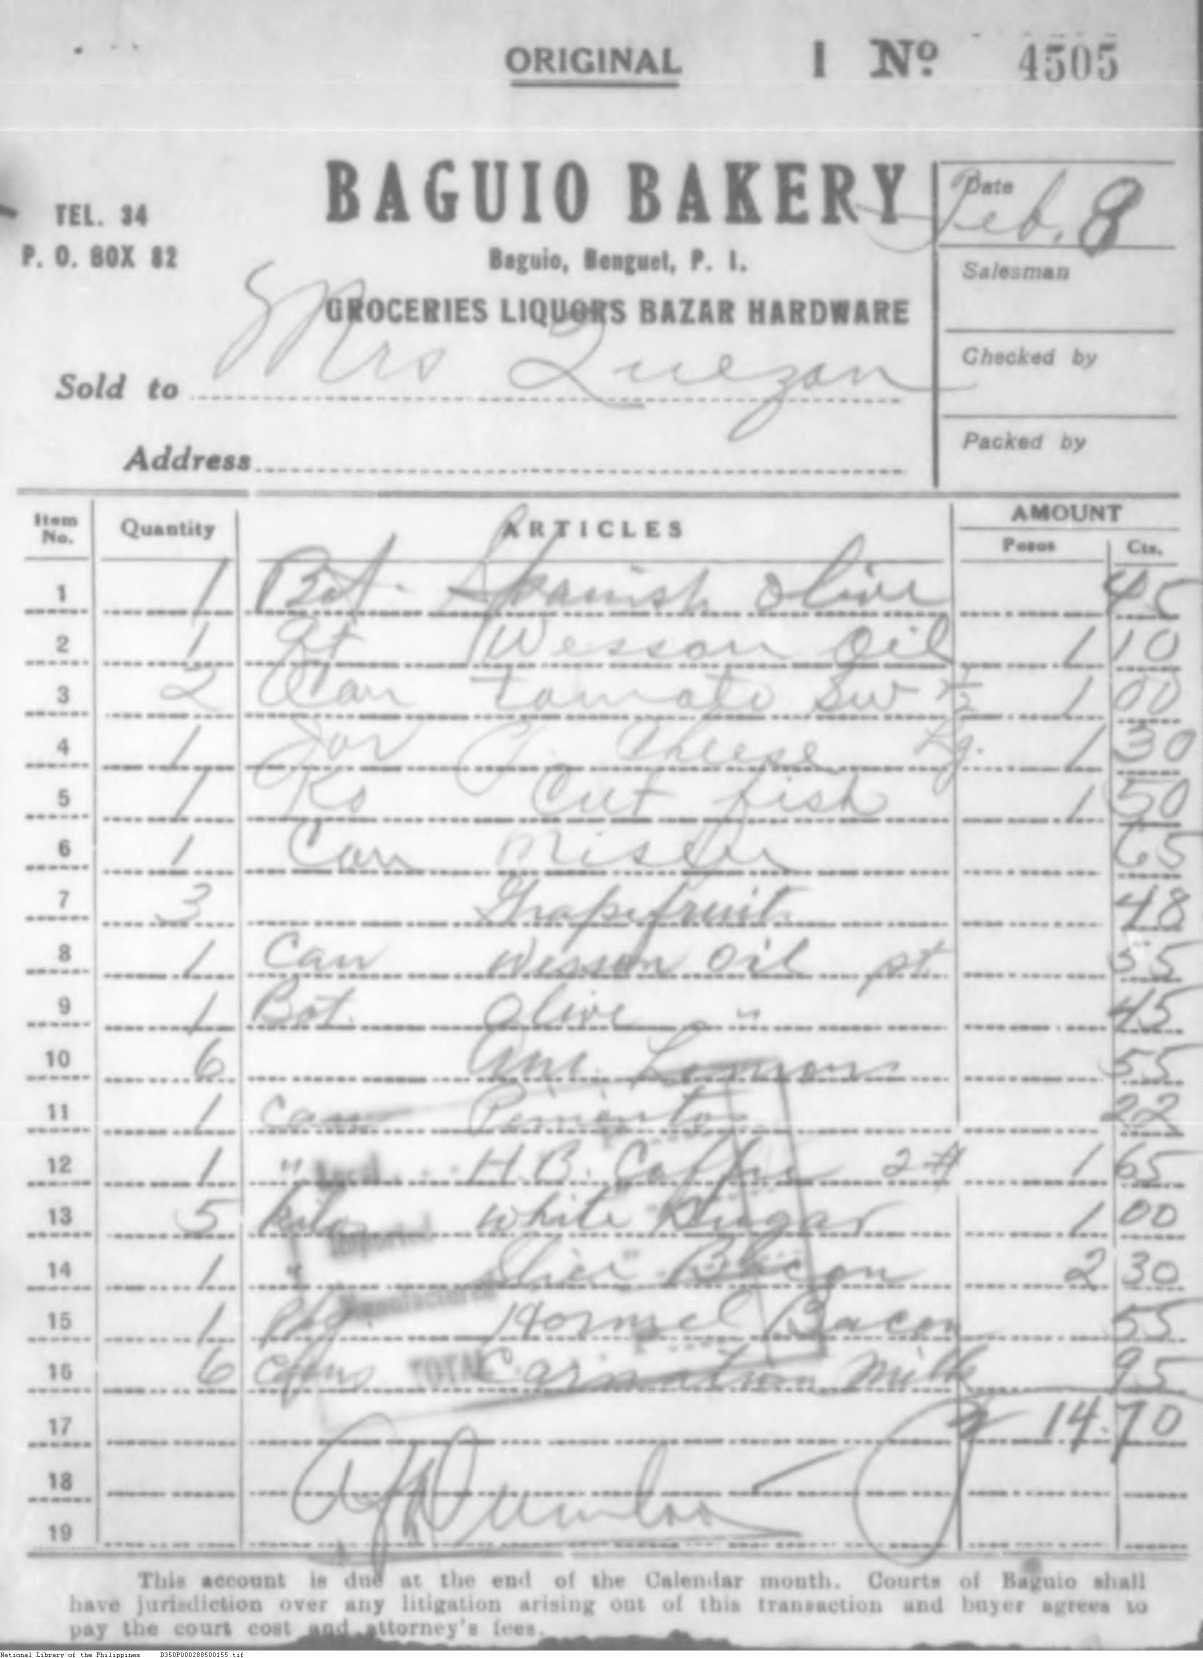 ORIGINAL I Nº 4505
BAGUIO BAKERY
TEL. 34
P. O. BOX 82
Baguio, Benguet, P. I.
GROCERIES LIQUORS BAZAR HARDWARE
Date Feb. 8
Salesman
Checked by
Packed by
Sold to Mrs Quezon
Address
Item No. Quantity ARTICLES AMOUNT
Pesos Cts.
1 1 Bot. Spanish Olive 45
2 1 Qt Wesson Oil 1 10
3 2 Can tomato Sw 1/2 1 00
4 1 Jar Cheese Lg. 1 30
5 1 Ko Cut fish 1 50
6 1 Can 65
7 3 Grapefruit 48
8 1 Can Wesson Oil pt 55
9 1 Bot. Olive " 45
10 6 Am. Lemons 55
11 1 Can Pimientos 22
12 1 " H.B. Coffee 2# 1 65
13 5 kilo White Sugar 1 00
14 1 " Slice Bacon 2 30
15 1 pkg. Hormel Bacon 55
16 6 Carnation Milk 95
17 14.70
18
19
Local
Imported
Manufactured
TOTAL
This account is due at the end of the Calendar month. Courts of Baguio shall
have jurisdiction over any litigation arising out of this transaction and buyer agrees to
pay the court cost and attorney's fees.
National Library of the Philippines D350P000288500155.tif